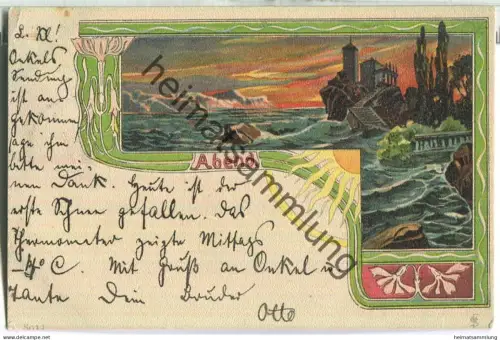 L. M!
Onkels
Sendung
ist an
gekommen
sage ihm
bitte mei-
nen Dank. Heute ist der
erste Schnee gefallen. Das
Thermometer zeigte Mittags
-4° C. Mit Gruß an Onkel u
Tante Dein Bruder
Otto
Abend
heimatsammlung
heimatsammlung.com